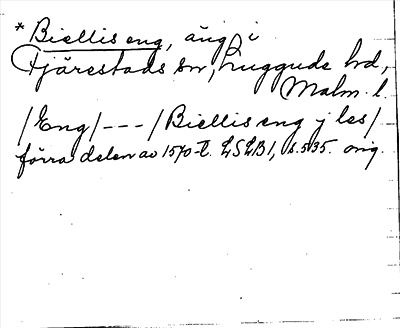 * Biellis eng, äng i
Fjärestads sn, Luggude hd,
Malm. l.
/Eng/ --- /Biellis eng j les/
förra delen av 1570-t. LSLB1, s. 535. orig.